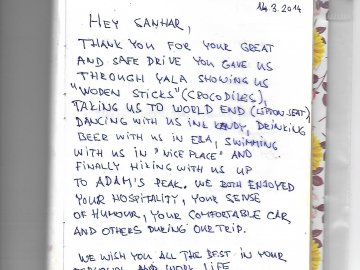 14.3.2014
HEY SANHAR,
THANK YOU FOR YOUR GREAT
AND SAFE DRIVE YOU GAVE US
THROUGH YALA SHOWING US
"WODEN STICKS" (CROCODILES),
TAKING US TO WORLD END (LIPTON SEAT)
DANCING WITH US IN KANDY, DRINKING
BEER WITH US IN ELLA, SWIMMING
WITH US IN "NICE PLACE" AND
FINALLY HIKING WITH US UP
TO ADAM'S PEAK. WE BOTH ENJOYED
YOUR HOSPITALITY, YOUR SENSE
OF HUMOUR, YOUR COMFORTABLE CAR
AND OTHERS DURING OUR TRIP.
WE WISH YOU ALL THE BEST IN YOUR
PERSONAL AND WORK LIFE